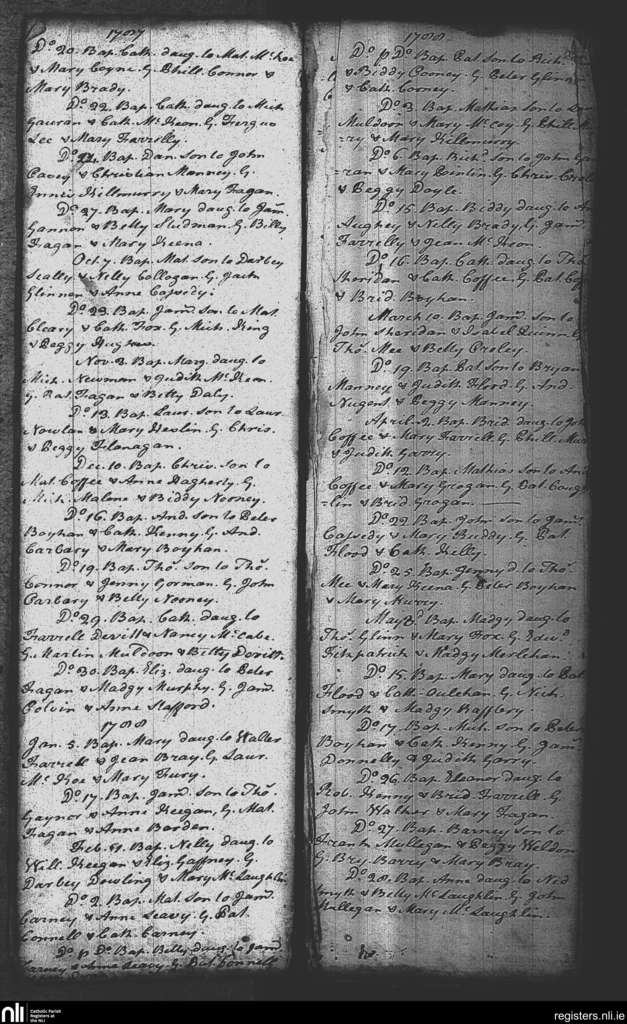 1787
Do. 20. Bap. Cath. daug. to Mat. McKoe
& Mary Coyne. G. Phill. Connor &
Mary Brady.
Do. 22. Bap. Cath. daug. to Mich
Gauran & Cath. McKeon. G. Fergus
Lee & Mary Farrelly.
Do. Bap. Dan. Son to John
Casey & Christian Manney. G.
Innis Killmurry & Mary Fagan.
Do. 27. Bap. Mary daug. to Jam.
Gannon & Betty Sludman. G. Billy
Fagan & Mary Keena.
Oct. 7. Bap. Mat. Son to Darbey
Scally & Nelly Collogan. G. Jack
Glinnon & Anne Cassedy.
Do. 23. Bap. Jam. Son to Mat.
Cleary & Cath. Fox. G. Mich. King
& Peggy Hughes.
Nov. 3. Bap. Marg. daug. to
Mich. Newman & Judith McKeon.
G. Pat. Fagan & Betty Daly.
Do. 13. Bap. Laur. Son to Laur.
Nowlan & Mary Hevlin. G. Chris.
& Peggy Flanagan.
Dec. 10. Bap. Chris. Son to
Mat. Coffee & Anne Dagherty. G.
Mich. Malone & Biddy Nooney.
Do. 16. Bap. And. Son to Peter
Boyhan & Cath. Kenny. G. And.
Carbary & Mary Boyhan.
Do. 19. Bap. Tho. Son to Tho.
Connor & Jenny Gorman. G. John
Carbary & Betty Nooney.
Do. 29. Bap. Cath. daug. to
Farrell Devitt & Nancy McCabe.
G. Martin Muldoon & Betty Devitt.
Do. 30. Bap. Eliz. daug. to Peter
Fagan & Madgy Murphy. G. Jam.
Colvin & Anne Stafford.
1788
Jan. 5. Bap. Mary daug. to Walter
Farrell & Jean Bray. G. Laur.
McKoe & Mary Fury.
Do. 17. Bap. Jam. Son to Tho.
Gaynor & Anne Keegan. G. Mat.
Fagan & Anne Barden.
Feb. 1. Bap. Nelly daug. to
Will. Keegan & Eliz. Gaffney. G.
Darbey Dowling & Mary McLaughlin
Do. 2. Bap. Mat. Son to Jam.
Carney & Anne Leavy. G. Pat.
Connell & Cath. Carney.
Do. p. Do. Bap. Betty daug. to Jam.
Carney & Anne Leavy. G. Pat. Connell
1788
Do. p. Do. Bap. Pat Son to Rich.
& Biddy Cooney. G. Peter Glinnon
& Cath. Corney.
Do. 3. Bap. Mathias Son to
Muldoon & Mary McCoy. G. Phill.
=ry & Mary Killmurry.
Do. 6. Bap. Rich. Son to John Gau
=ran & Mary Quinlin. G. Chris.
& Peggy Doyle.
Do. 15. Bap. Biddy daug. to
Aughey & Nelly Brady. G. Jam.
Farrelly & Jean McKeon.
Do. 16. Bap. Cath. daug. to Tho.
Sheridan & Cath. Coffee. G. Pat.
& Brid. Boyhan.
March 10. Bap. Jam. Son to
John Sheridan & Isabel Quinn. G.
Tho. Mee & Betty Croley.
Do. 19. Bap. Pat Son to Bryan
Manney & Judith Flood. G. And.
Nugent & Peggy Manney.
April. 2. Bap. Brid. daug. to John
Coffee & Mary Farrell. G. Phill.
& Judith Garry.
Do. 12. Bap. Mathias Son to And
Coffee & Mary Grogan. G. Pat. Cough
=lin & Brid. Grogan.
Do. 22. Bap. John Son to Jam.
Cassedy & Mary Ruddy. G. Pat
Flood & Cath. Kelly.
Do. 25. Bap. Jenny d. to Tho.
Mee & Mary Keena. G. Peter Boyhan
& Mary Murry.
May 3d. Bap. Madgy daug. to
Tho. Glinn & Mary Fox. G. Edw.
Fitzpatrick & Madgy Merlehan.
Do. 15. Bap. Mary daug. to Pat
Flood & Cath. Oulehan. G. Nich.
Smyth & Madgy Raffery.
Do. 17. Bap. Mich. Son to Peter
Boyhan & Cath. Kenny. G. Jam.
Donnelly & Judith Garry.
Do. 26. Bap. Eleanor daug. to
Rob. Kenny & Brid. Farrell. G.
John Walker & Mary Fagan.
Do. 27. Bap. Barney Son to
Frank Mullegan & Peggy Weldon.
G. Bry. Barry & Mary Bray.
Do. 28. Bap. Anne daug. to Ned
Smyth & Betty McLaughlin. G. John
Mullegan & Mary McLaughlin.
nli
Catholic Parish
Registers at
the NLI
registers.nli.ie